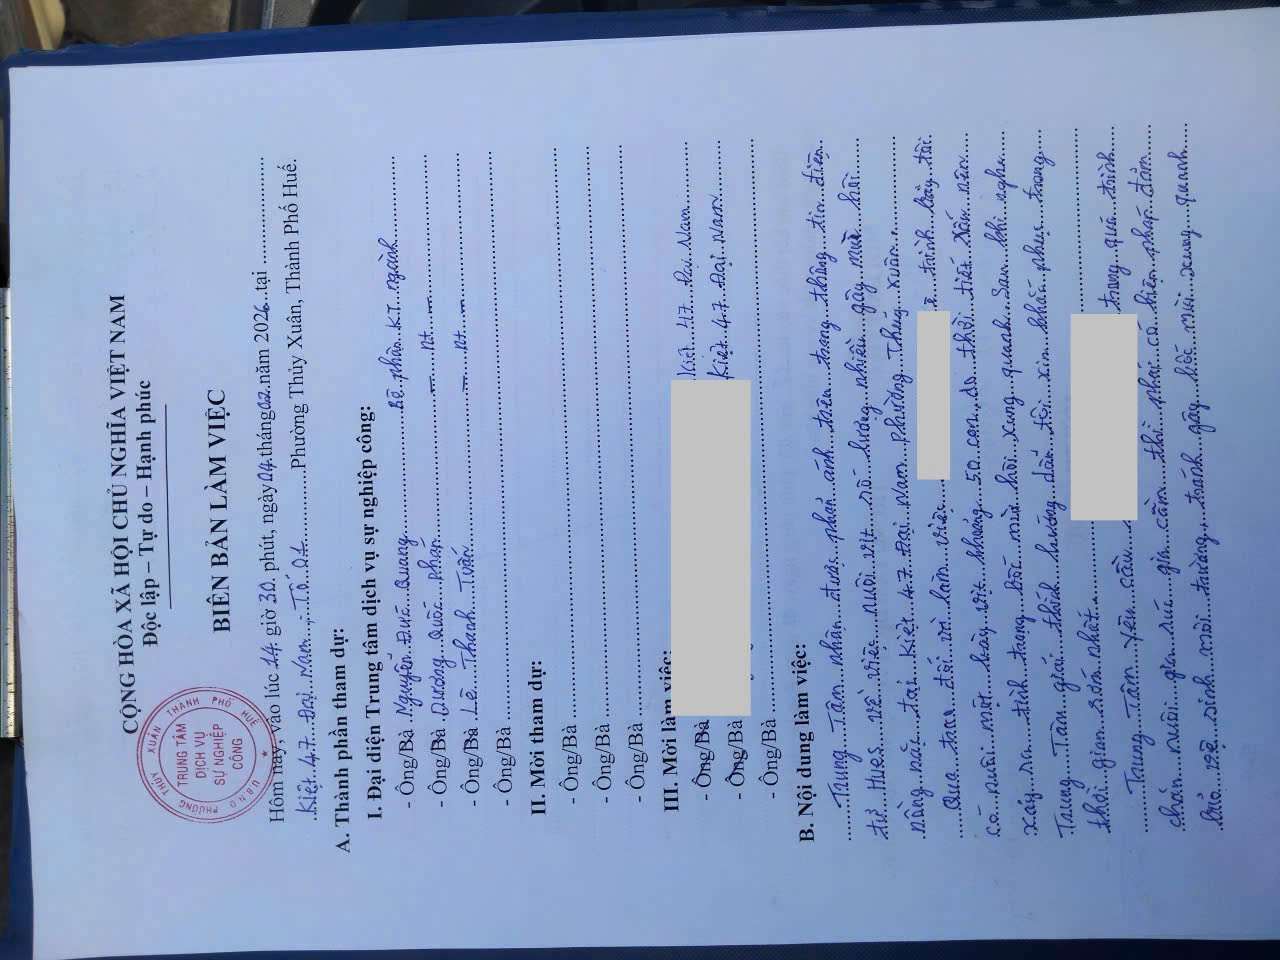 CỘNG HÒA XÃ HỘI CHỦ NGHĨA VIỆT NAM
Độc lập – Tự do – Hạnh phúc
U.B.N.D PHƯỜNG THỦY XUÂN THÀNH PHỐ HUẾ
TRUNG TÂM
DỊCH VỤ
SỰ NGHIỆP
CÔNG
BIÊN BẢN LÀM VIỆC
Hôm nay, vào lúc 14 giờ 30 phút, ngày 04 tháng 02 năm 2026 tại
Kiệt 47 Đại Nam, Tổ 01 Phường Thủy Xuân, Thành Phố Huế.
A. Thành phần tham dự:
I. Đại diện Trung tâm dịch vụ sự nghiệp công:
- Ông/Bà Nguyễn Đức Quang Bộ phận KT ngành
- Ông/Bà Dương Quốc Pháp — nt —
- Ông/Bà Lê Thanh Tuấn — nt —
- Ông/Bà
II. Mời tham dự:
- Ông/Bà
- Ông/Bà
- Ông/Bà
III. Mời làm việc:
- Ông/Bà Kiệt 47 Đại Nam
- Ông/Bà Kiệt 47 Đại Nam
- Ông/Bà
B. Nội dung làm việc:
Trung Tâm nhận được phản ánh trên trang thông tin điện
tử HueS về việc nuôi vịt số lượng nhiều gây mùi hôi
nồng nặc tại Kiệt 47 Đại Nam phường Thủy Xuân
Qua trao đổi và làm việc trình bày tôi
có nuôi một bầy vịt khoảng 50 con, do thời tiết xấu nên
xảy ra tình trạng bốc mùi hôi xung quanh. Sau khi nghe
Trung Tâm giải thích hướng dẫn tôi xin khắc phục trong
thời gian sớm nhất.
Trung Tâm yêu cầu trong quá trình
chăn nuôi gia súc gia cầm thì phải có biện pháp đảm
bảo vệ sinh môi trường, tránh gây bốc mùi xung quanh